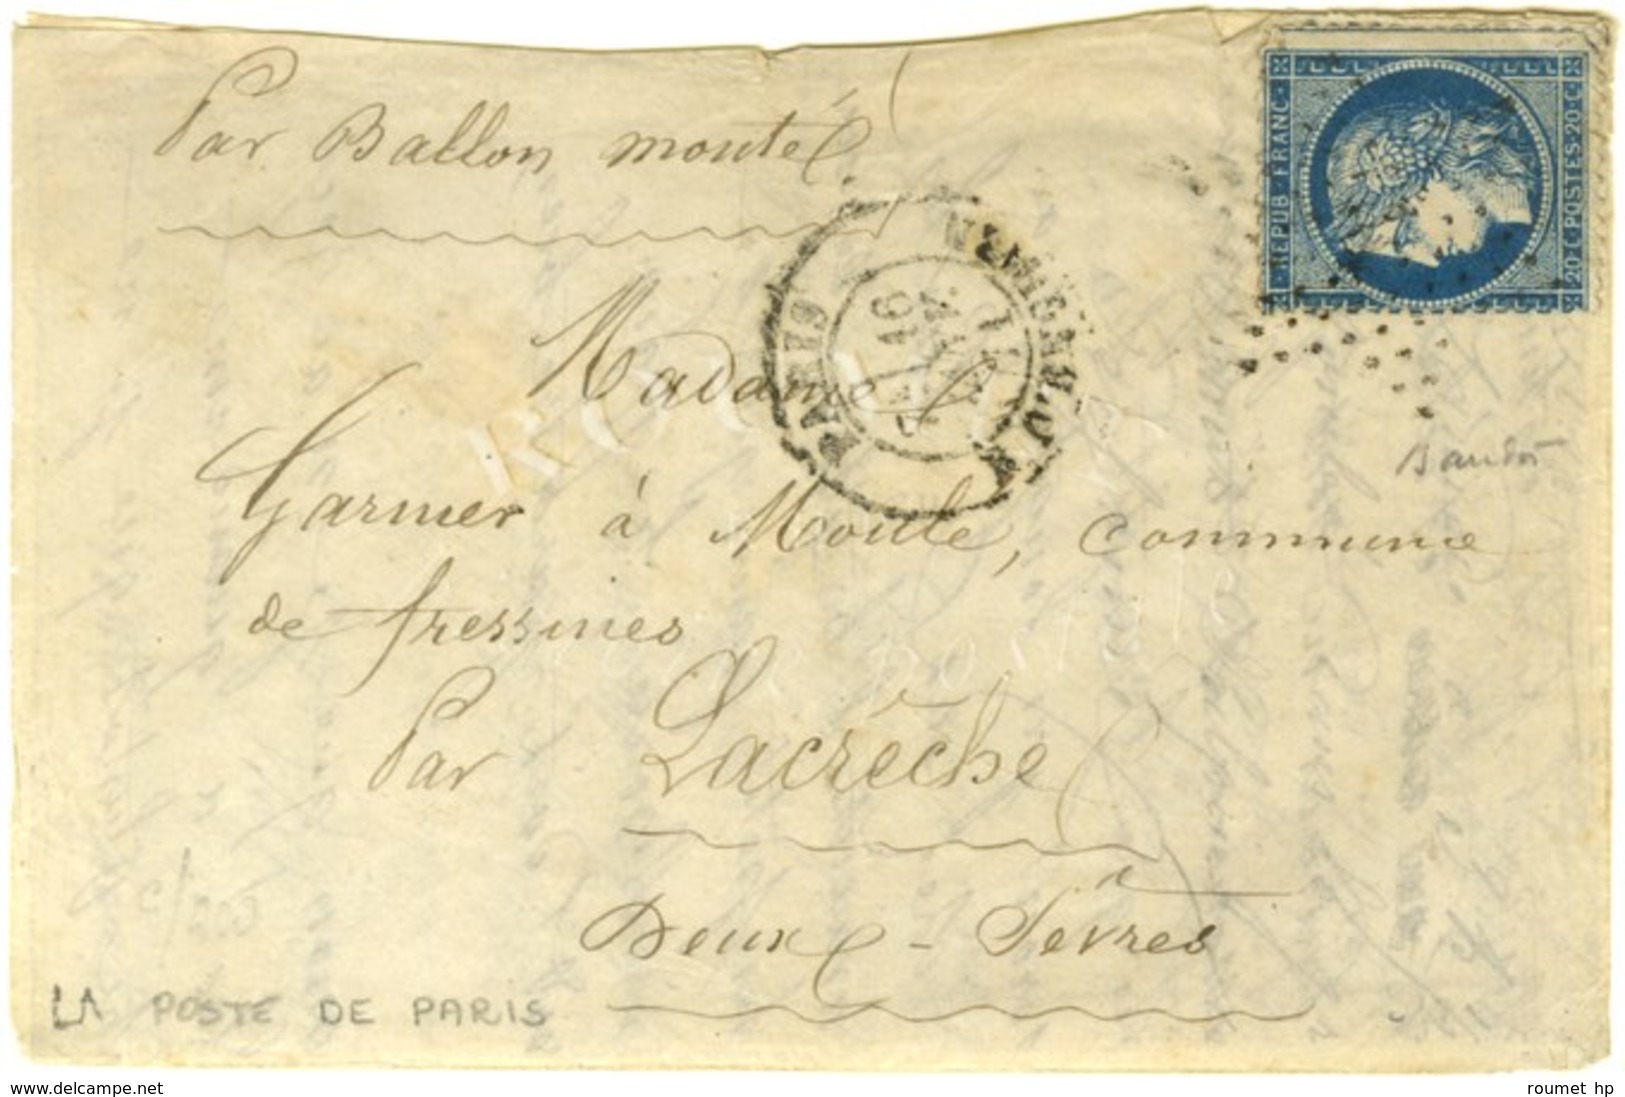 Par Ballon monté.
REPUB·FRANC·
20·C·POSTES·20·C
PARIS
16
JANV.
71
Madame
Garnier à Moulé, commune
de fressines
Par Lacrèche
Deux-Sèvres
Baudot
LA POSTE DE PARIS
www.delcampe.net
roumet hp